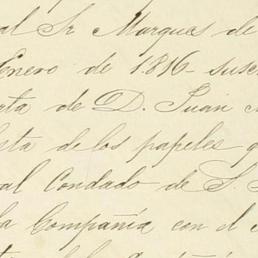 al Sr Marques de
Enero de 1816 - susc
ta de D. Juan
sta de los papeles q
al Condado de S.
la Compañia con el